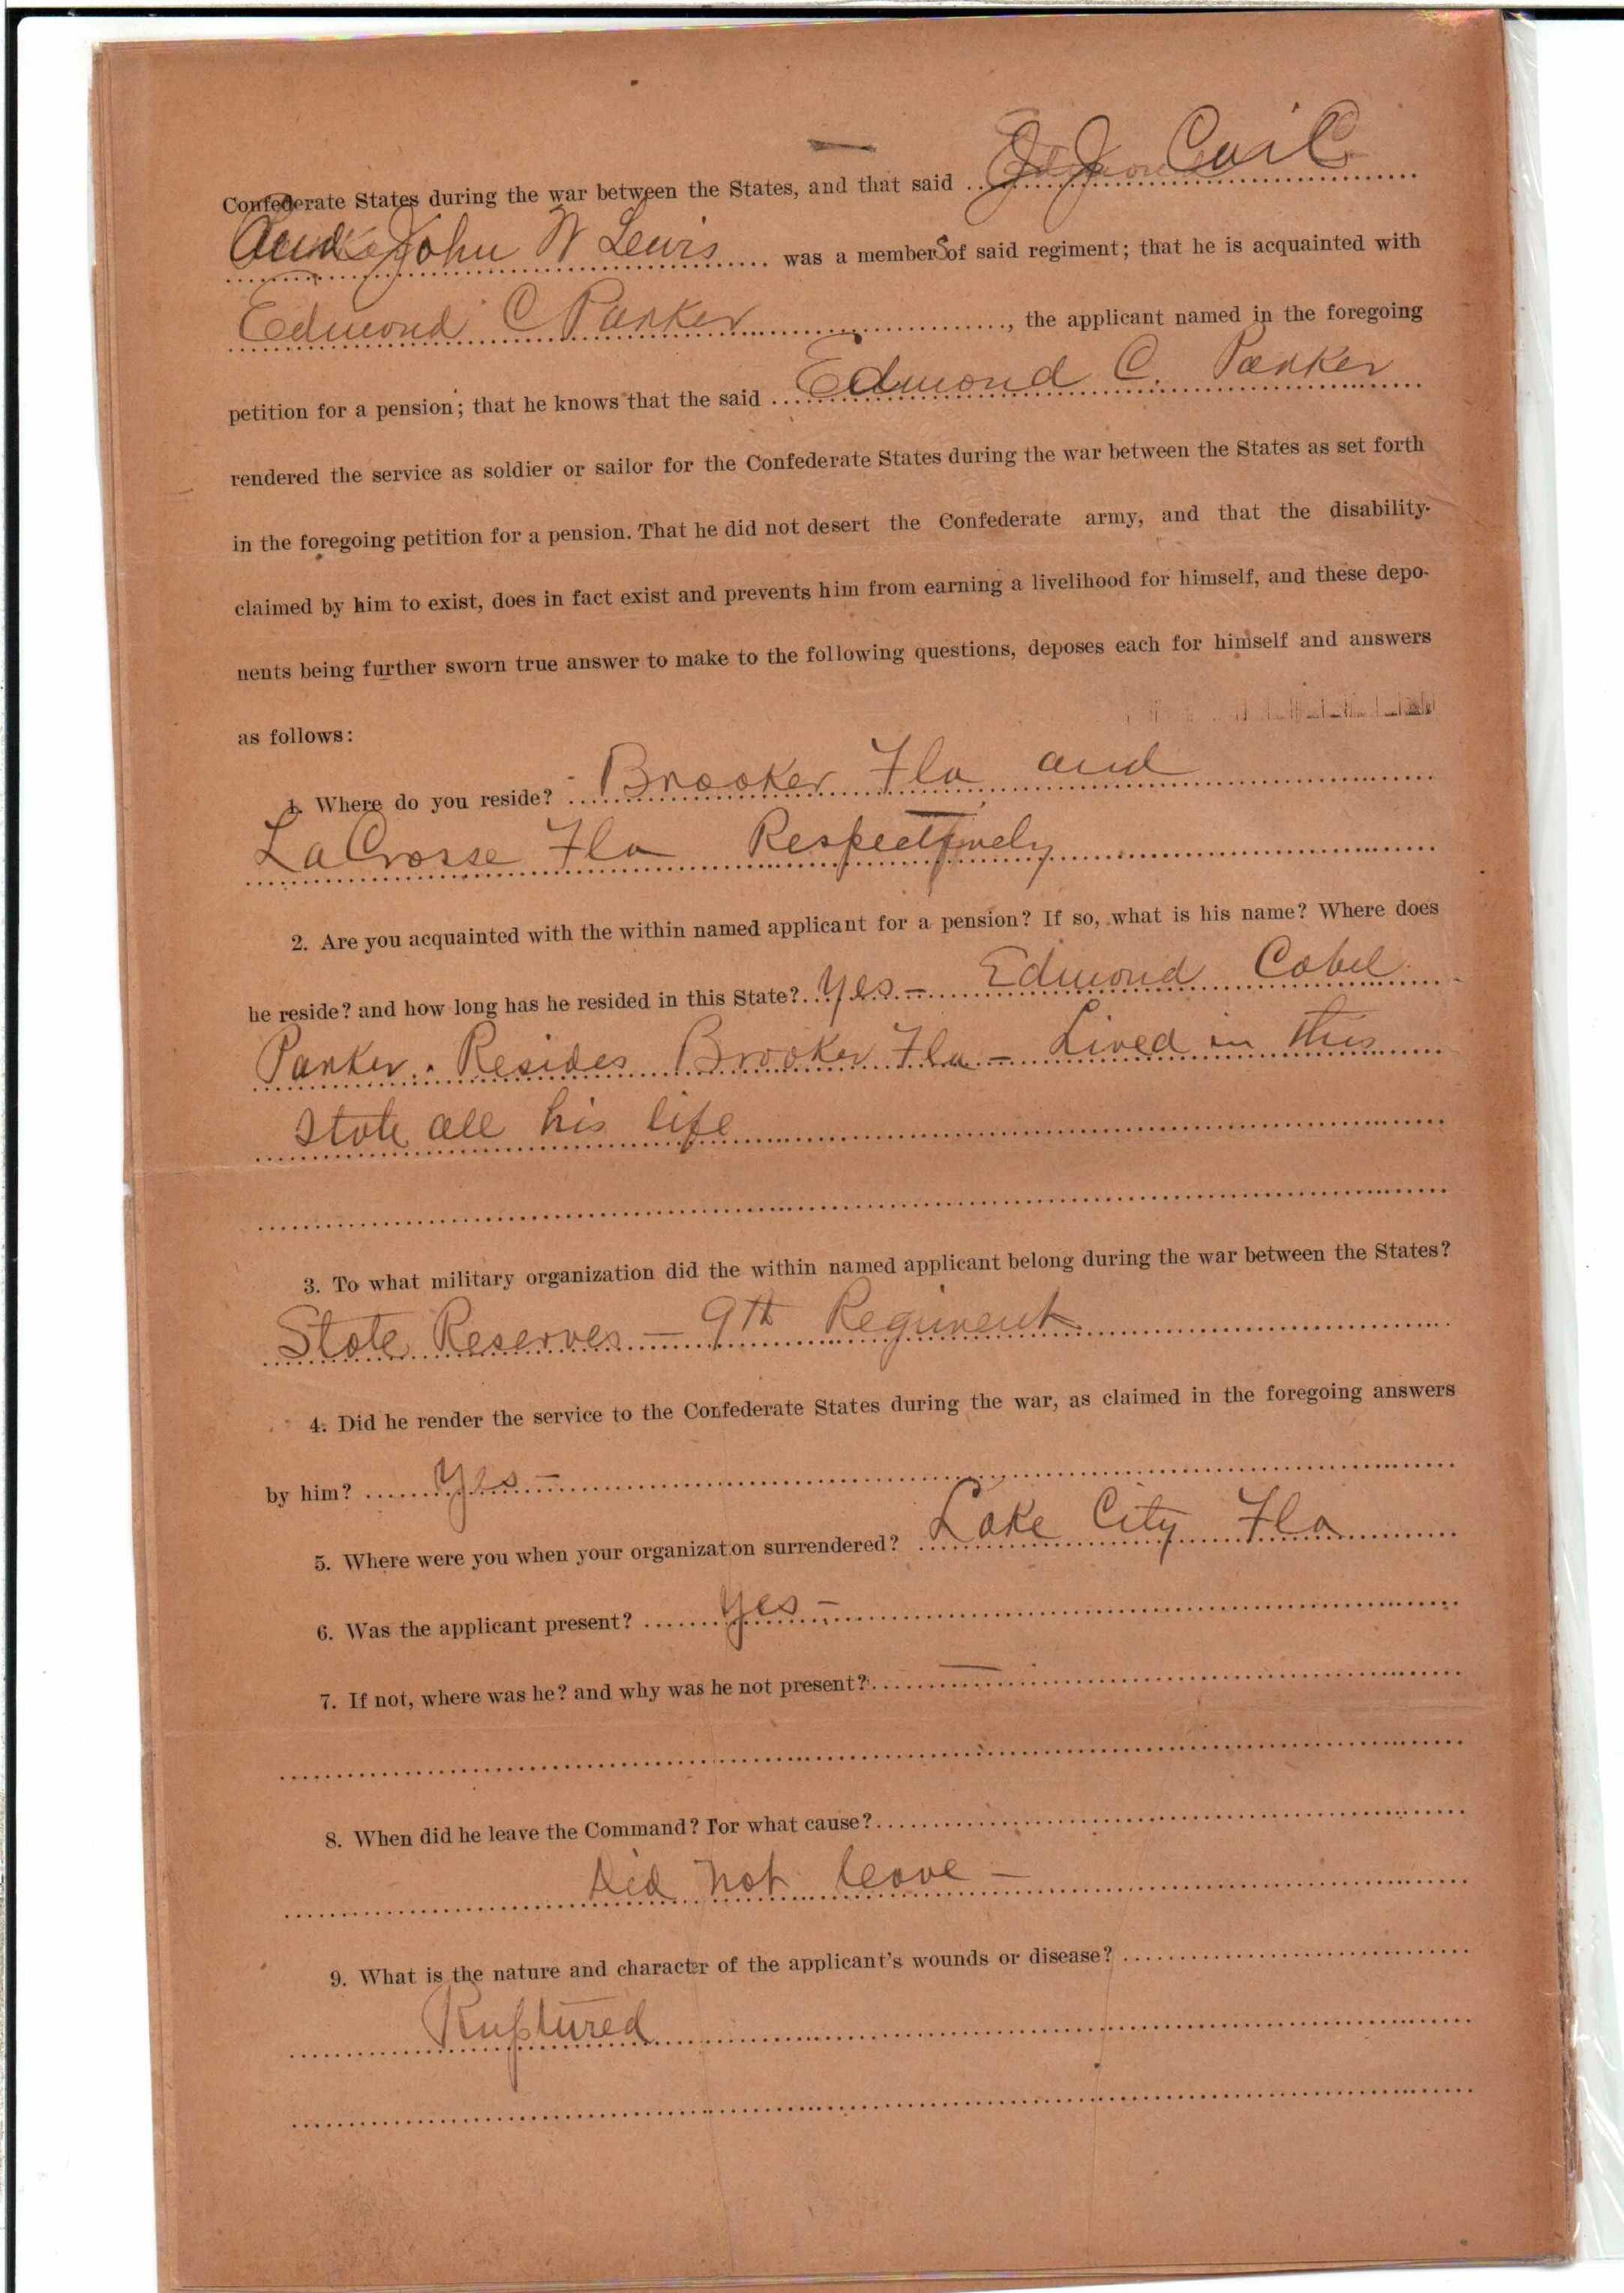 Confederate States during the war between the States, and that said J J Cail
and John W Lewis was a members of said regiment; that he is acquainted with
Edmond C Parker, the applicant named in the foregoing
petition for a pension; that he knows that the said Edmond C. Parker
rendered the service as soldier or sailor for the Confederate States during the war between the States as set forth
in the foregoing petition for a pension. That he did not desert the Confederate army, and that the disability
claimed by him to exist, does in fact exist and prevents him from earning a livelihood for himself, and these depo-
nents being further sworn true answer to make to the following questions, deposes each for himself and answers
as follows:
1. Where do you reside? Brooker Fla and
LaCrosse Fla Respectively
2. Are you acquainted with the within named applicant for a pension? If so, what is his name? Where does
he reside? and how long has he resided in this State? Yes - Edmond Cobel
Parker. Resides Brooker Fla - Lived in this
State all his life
3. To what military organization did the within named applicant belong during the war between the States?
State Reserves - 9th Regiment
4. Did he render the service to the Confederate States during the war, as claimed in the foregoing answers
by him? Yes -
5. Where were you when your organizaton surrendered? Lake City Fla
6. Was the applicant present? Yes -
7. If not, where was he? and why was he not present? -
8. When did he leave the Command? For what cause?
Did not leave -
9. What is the nature and character of the applicant's wounds or disease?
Ruptured